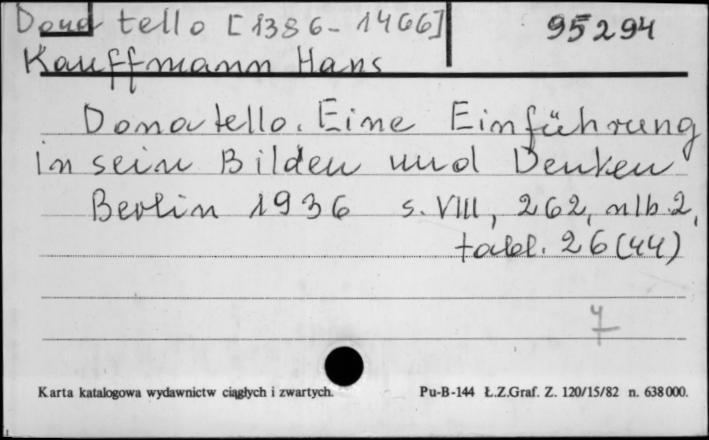 Donatello [1386-1466] 95294
Kauffmann Hans
Donatello. Eine Einführung
in sein Bilden und Denken
Berlin 1936 s. VIII, 262, nlb 2,
tabl. 26 (44)
7
Karta katalogowa wydawnictw ciągłych i zwartych. Pu-B-144 Ł.Z.Graf. Z. 120/15/82 n. 638000.